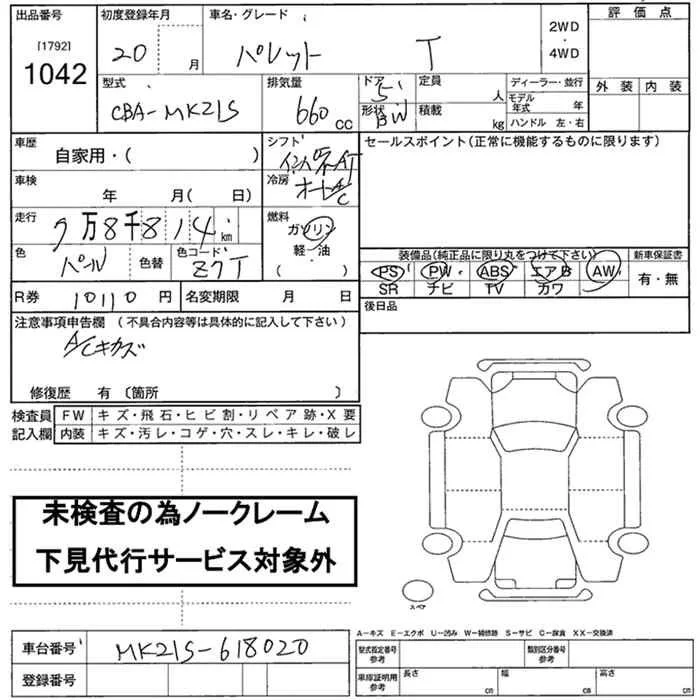 出品番号 初度登録年月 車名・グレード 評価点
[1792] 1042 20 月 パレット T 2WD・4WD
型式 排気量 ドア 定員 ディーラー・並行 外装 内装
CBA-MK21S 660 CC 5 人 モデル年式 年
形状 BW 積載 kg ハンドル 左・右
車歴 自家用・( ) シフト インパネAT セールスポイント(正常に機能するものに限ります)
車検 年 月( 日) 冷房 オートAC
走行 7万8千814km 燃料 ガソリン 軽・油 ( )
色 パール 色替 色コード Z7T
装備品(純正品に限り丸をつけて下さい) 新車保証書
PS PW ABS エアB AW 有・無
SR ナビ TV カワ
R券 10110 円 名変期限 月 日 後日品
注意事項申告欄 (不具合内容等は具体的に記入して下さい)
A/Cキカズ
修復歴 有 〔箇所 〕
検査員 FW キズ・飛石・ヒビ割・リペア跡・X要
記入欄 内装 キズ・汚レ・コゲ・穴・スレ・キレ・破レ
未検査の為ノークレーム
下見代行サービス対象外
スペア
A-キズ E-エクボ U-凹み W-補修跡 S-サビ C-腐食 XX-交換済
車台番号 MK21S-618020 型式指定番号 参考 類別区分番号 参考
登録番号 車庫証明用 参考 長さ cm 幅 cm 高さ cm